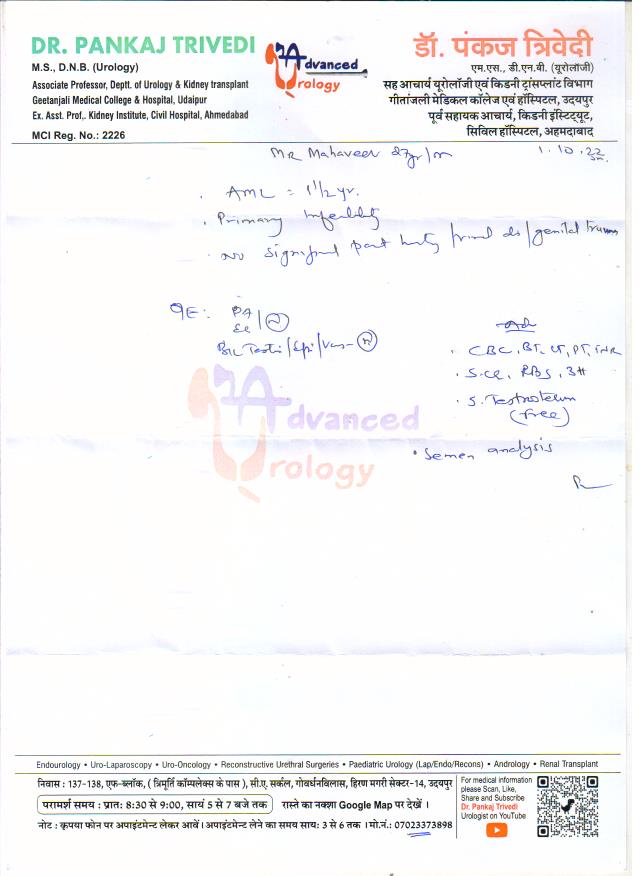 DR. PANKAJ TRIVEDI
M.S., D.N.B. (Urology)
Associate Professor, Deptt. of Urology & Kidney transplant
Geetanjali Medical College & Hospital, Udaipur
Ex. Asst. Prof,. Kidney Institute, Civil Hospital, Ahmedabad
MCI Reg. No.: 2226
Advanced
Urology
डॉ. पंकज त्रिवेदी
एम.एस., डी.एन.बी. (यूरोलॉजी)
सह आचार्य यूरोलॉजी एवं किडनी ट्रांसप्लांट विभाग
गीतांजली मेडिकल कॉलेज एवं हॉस्पिटल, उदयपुर
पूर्व सहायक आचार्य, किडनी इंस्टिट्यूट,
सिविल हॉस्पिटल, अहमदाबाद
Mr Mahaveer 27yr/m
1.10.22
. AML = 1 1/2 yr.
. Primary Infertility
. No past / genital trauma
PA
B/L Testi/Epi/Vas - (N)
Adv
. CBC, BT, CT, PT, INR
. S.Cr, RBS, 3H
. S. Testosterone
(free)
. Semen analysis
Advanced
Urology
Endourology • Uro-Laparoscopy • Uro-Oncology • Reconstructive Urethral Surgeries • Paediatric Urology (Lap/Endo/Recons) • Andrology • Renal Transplant
निवास : 137-138, एफ-ब्लॉक, ( त्रिमूर्ति कॉम्पलेक्स के पास ), सी.ए. सर्कल, गोवर्धनविलास, हिरण मगरी सेक्टर-14, उदयपुर
परामर्श समय : प्रात: 8:30 से 9:00, सायं 5 से 7 बजे तक रास्ते का नक्शा Google Map पर देखें ।
नोट : कृपया फोन पर अपाइंटमेन्ट लेकर आवें । अपाइंटमेन्ट लेने का समय साय: 3 से 6 तक । मो.नं.: 07023373898
For medical information
please Scan, Like,
Share and Subscribe
Dr. Pankaj Trivedi
Urologist on YouTube